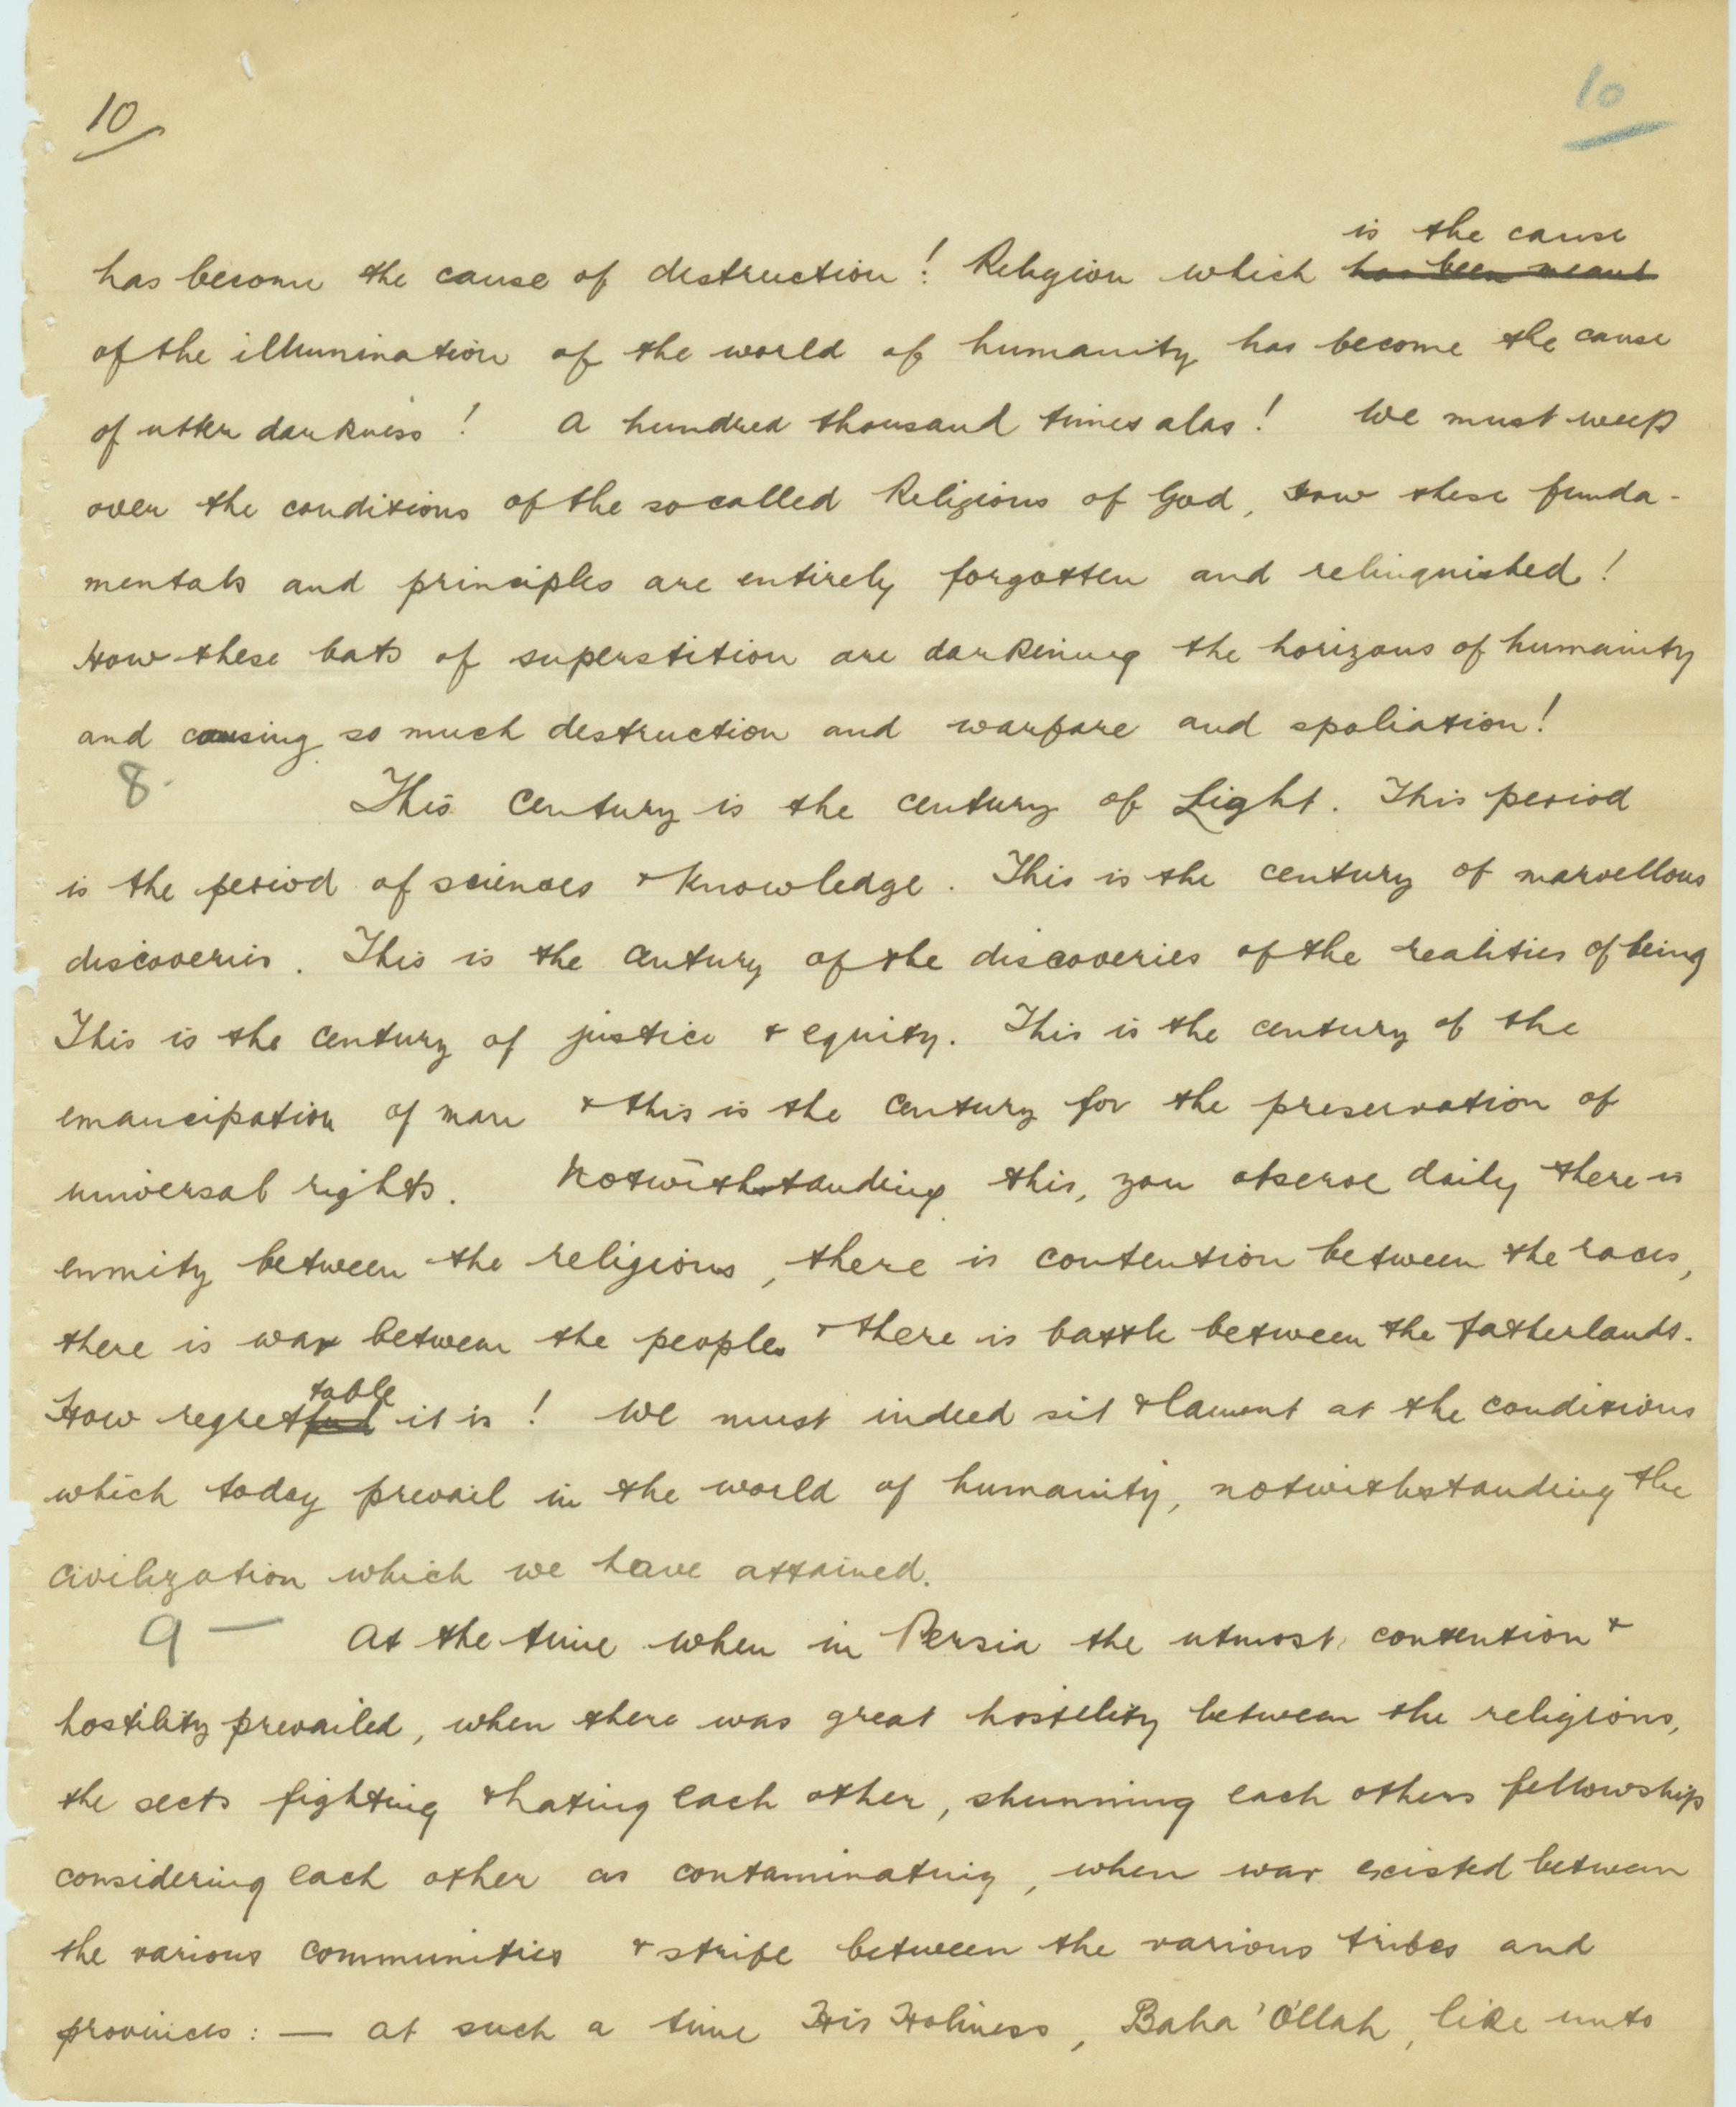 10
10
is the cause
has become the cause of destruction! Religion which has been meant
of the illumination of the world of humanity has become the cause
of utter darkness! A hundred thousand times alas! We must weep
over the conditions of the so called Religions of God, How these funda-
mentals and principles are entirely forgotten and relinquished!
How these bats of superstition are darkening the horizons of humanity
and causing so much destruction and warfare and spoliation!
8-
This Century is the century of Light. This period
is the period of sciences & knowledge. This is the century of marvellous
discoveries. This is the Century of the discoveries of the realities of being
This is the century of justice & equity. This is the century of the
emancipation of man & this is the century for the preservation of
universal rights. Notwithstanding this, you observe daily there is
enmity between the religions, there is contention between the races,
there is war between the peoples & there is battle between the fatherlands.
table
How regretful it is! We must indeed sit & lament at the conditions
which today prevail in the world of humanity, notwithstanding the
civilization which we have attained.
9 —
At the time when in Persia the utmost contention &
hostility prevailed, when there was great hostility between the religions,
the sects fighting & hating each other, shunning each others fellowship
considering each other as contaminating, when war existed between
the various communities & strife between the various tribes and
provinces: — at such a time His Holiness, Baha 'O'llah, like unto